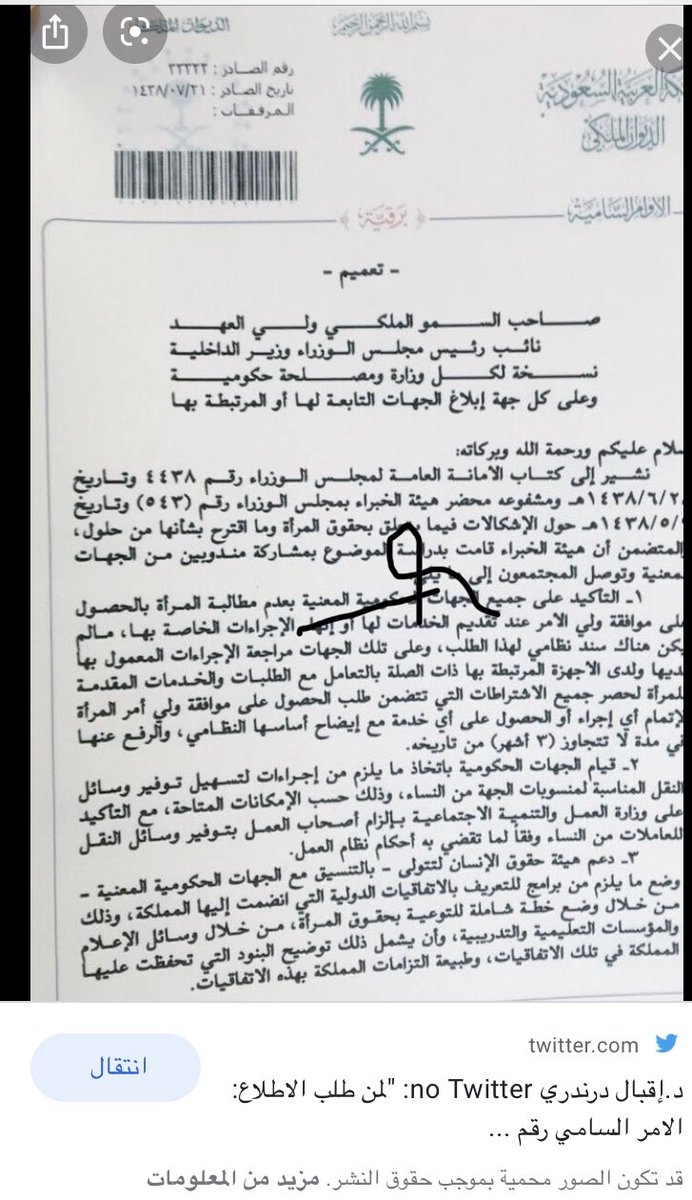 الديوان الملكي
بسم الله الرحمن الرحيم
رقم الصادر : ٣٣٣٢٢
تاريخ الصادر : ١٤٣٨/٠٧/٢١
المرفقات :
العربية السعودية
الديوان الملكي
الأوامر السامية
برقية
- تعميم -
صاحب السمو الملكي ولي العهد
نائب رئيس مجلس الوزراء وزير الداخلية
نسخة لكل وزارة ومصلحة حكومية
وعلى كل جهة إبلاغ الجهات التابعة لها أو المرتبطة بها
سلام عليكم ورحمة الله وبركاته:
نشير إلى كتاب الأمانة العامة لمجلس الوزراء رقم ٤٤٣٨ وتاريخ
١٤٣٨/٦/٢هـ ومشفوعه محضر هيئة الخبراء بمجلس الوزراء رقم (٥٤٣) وتاريخ
١٤٣٨/٥/هـ حول الإشكالات فيما يتعلق بحقوق المرأة وما اقترح بشأنها من حلول،
المتضمن أن هيئة الخبراء قامت بدراسة الموضوع بمشاركة مندوبين من الجهات
معنية وتوصل المجتمعون إلى ما يلي:
١- التأكيد على جميع الجهات الحكومية المعنية بعدم مطالبة المرأة بالحصول
لى موافقة ولي الأمر عند تقديم الخدمات لها أو إنهاء الإجراءات الخاصة بها، مالم
يكن هناك سند نظامي لهذا الطلب، وعلى تلك الجهات مراجعة الإجراءات المعمول بها
ديها ولدى الأجهزة المرتبطة بها ذات الصلة بالتعامل مع الطلبات والخدمات المقدمة
للمرأة لحصر جميع الاشتراطات التي تتضمن طلب الحصول على موافقة ولي أمر المرأة
لإتمام أي إجراء أو الحصول على أي خدمة مع إيضاح أساسها النظامي، والرفع عنها
في مدة لا تتجاوز (٣ أشهر) من تاريخه.
٢- قيام الجهات الحكومية باتخاذ ما يلزم من إجراءات لتسهيل توفير وسائل
النقل المناسبة لمنسوبات الجهة من النساء، وذلك حسب الإمكانات المتاحة، مع التأكيد
على وزارة العمل والتنمية الاجتماعية بإلزام أصحاب العمل بتوفير وسائل النقل
للعاملات من النساء وفقاً لما تقضي به أحكام نظام العمل.
٣- دعم هيئة حقوق الإنسان لتتولى - بالتنسيق مع الجهات الحكومية المعنية -
وضع ما يلزم من برامج للتعريف بالاتفاقيات الدولية التي انضمت إليها المملكة، وذلك
من خلال وضع خطة شاملة للتوعية بحقوق المرأة، من خلال وسائل الإعلام
والمؤسسات التعليمية والتدريبية، وأن يشمل ذلك توضيح البنود التي تحفظت عليها
المملكة في تلك الاتفاقيات، وطبيعة التزامات المملكة بهذه الاتفاقيات.
twitter.com
انتقال
د.إقبال درندري on Twitter: "لمن طلب الاطلاع:
الامر السامي رقم ...
قد تكون الصور محمية بموجب حقوق النشر. مزيد من المعلومات